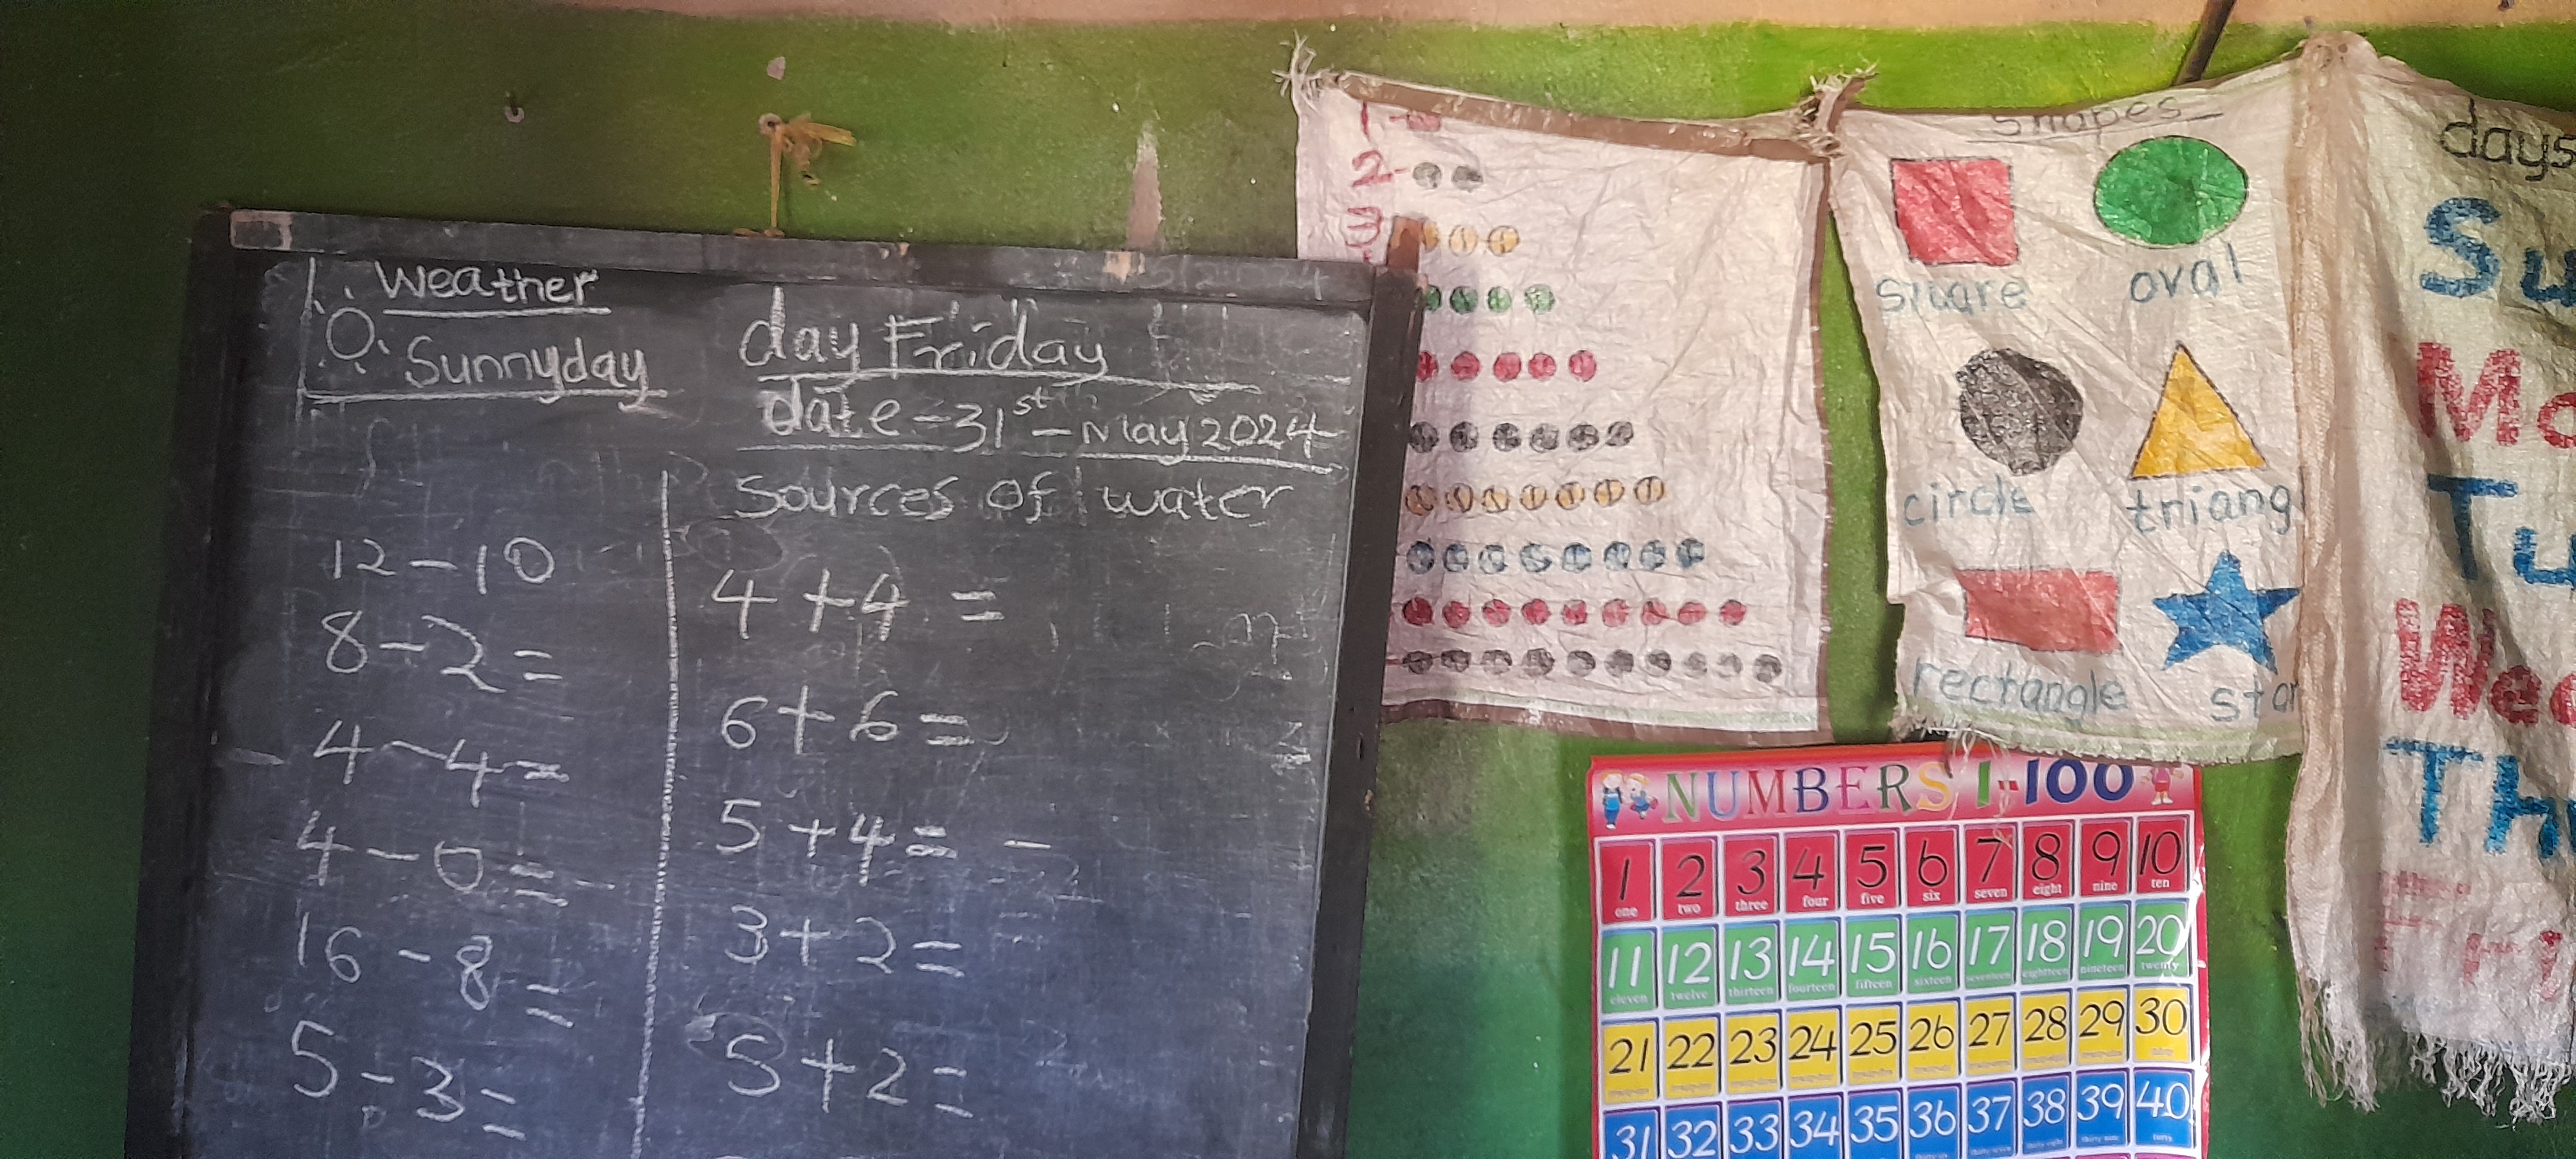 Weather
Sunnyday
day Friday
date - 31st - May 2024
Sources of water
12 - 10
8 - 2 =
4 - 4 =
4 - 0 =
16 - 8 =
5 - 3 =
4 + 4 =
6 + 6 =
5 + 4 =
3 + 2 =
5 + 2 =
1
2
3
Shapes
square
oval
circle
triang
rectangle
star
days
Su
Mo
Tu
Wed
Th
Fri
NUMBERS 1-100
1 2 3 4 5 6 7 8 9 10
one two three four five six seven eight nine ten
11 12 13 14 15 16 17 18 19 20
eleven twelve thirteen fourteen fifteen sixteen seventeen eighteen nineteen twenty
21 22 23 24 25 26 27 28 29 30
31 32 33 34 35 36 37 38 39 40